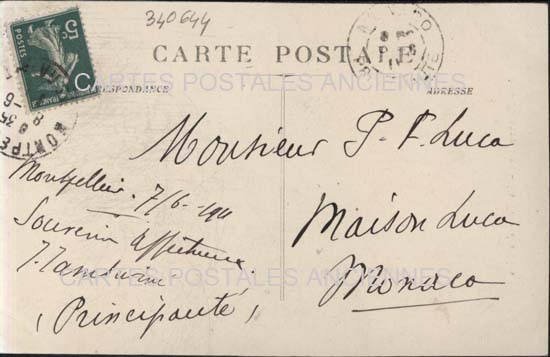 340644
CARTE POSTALE
CORRESPONDANCE
ADRESSE
5 c
MONTPE
8-6
35
Monsieur P. F. Luca
Maison Luca
Monaco
Montpellier. 7/6-1911
Souvenir affectueux.
(Principauté)
CARTES POSTALES ANCIENNES
CARTES POSTALES ANCIENNES